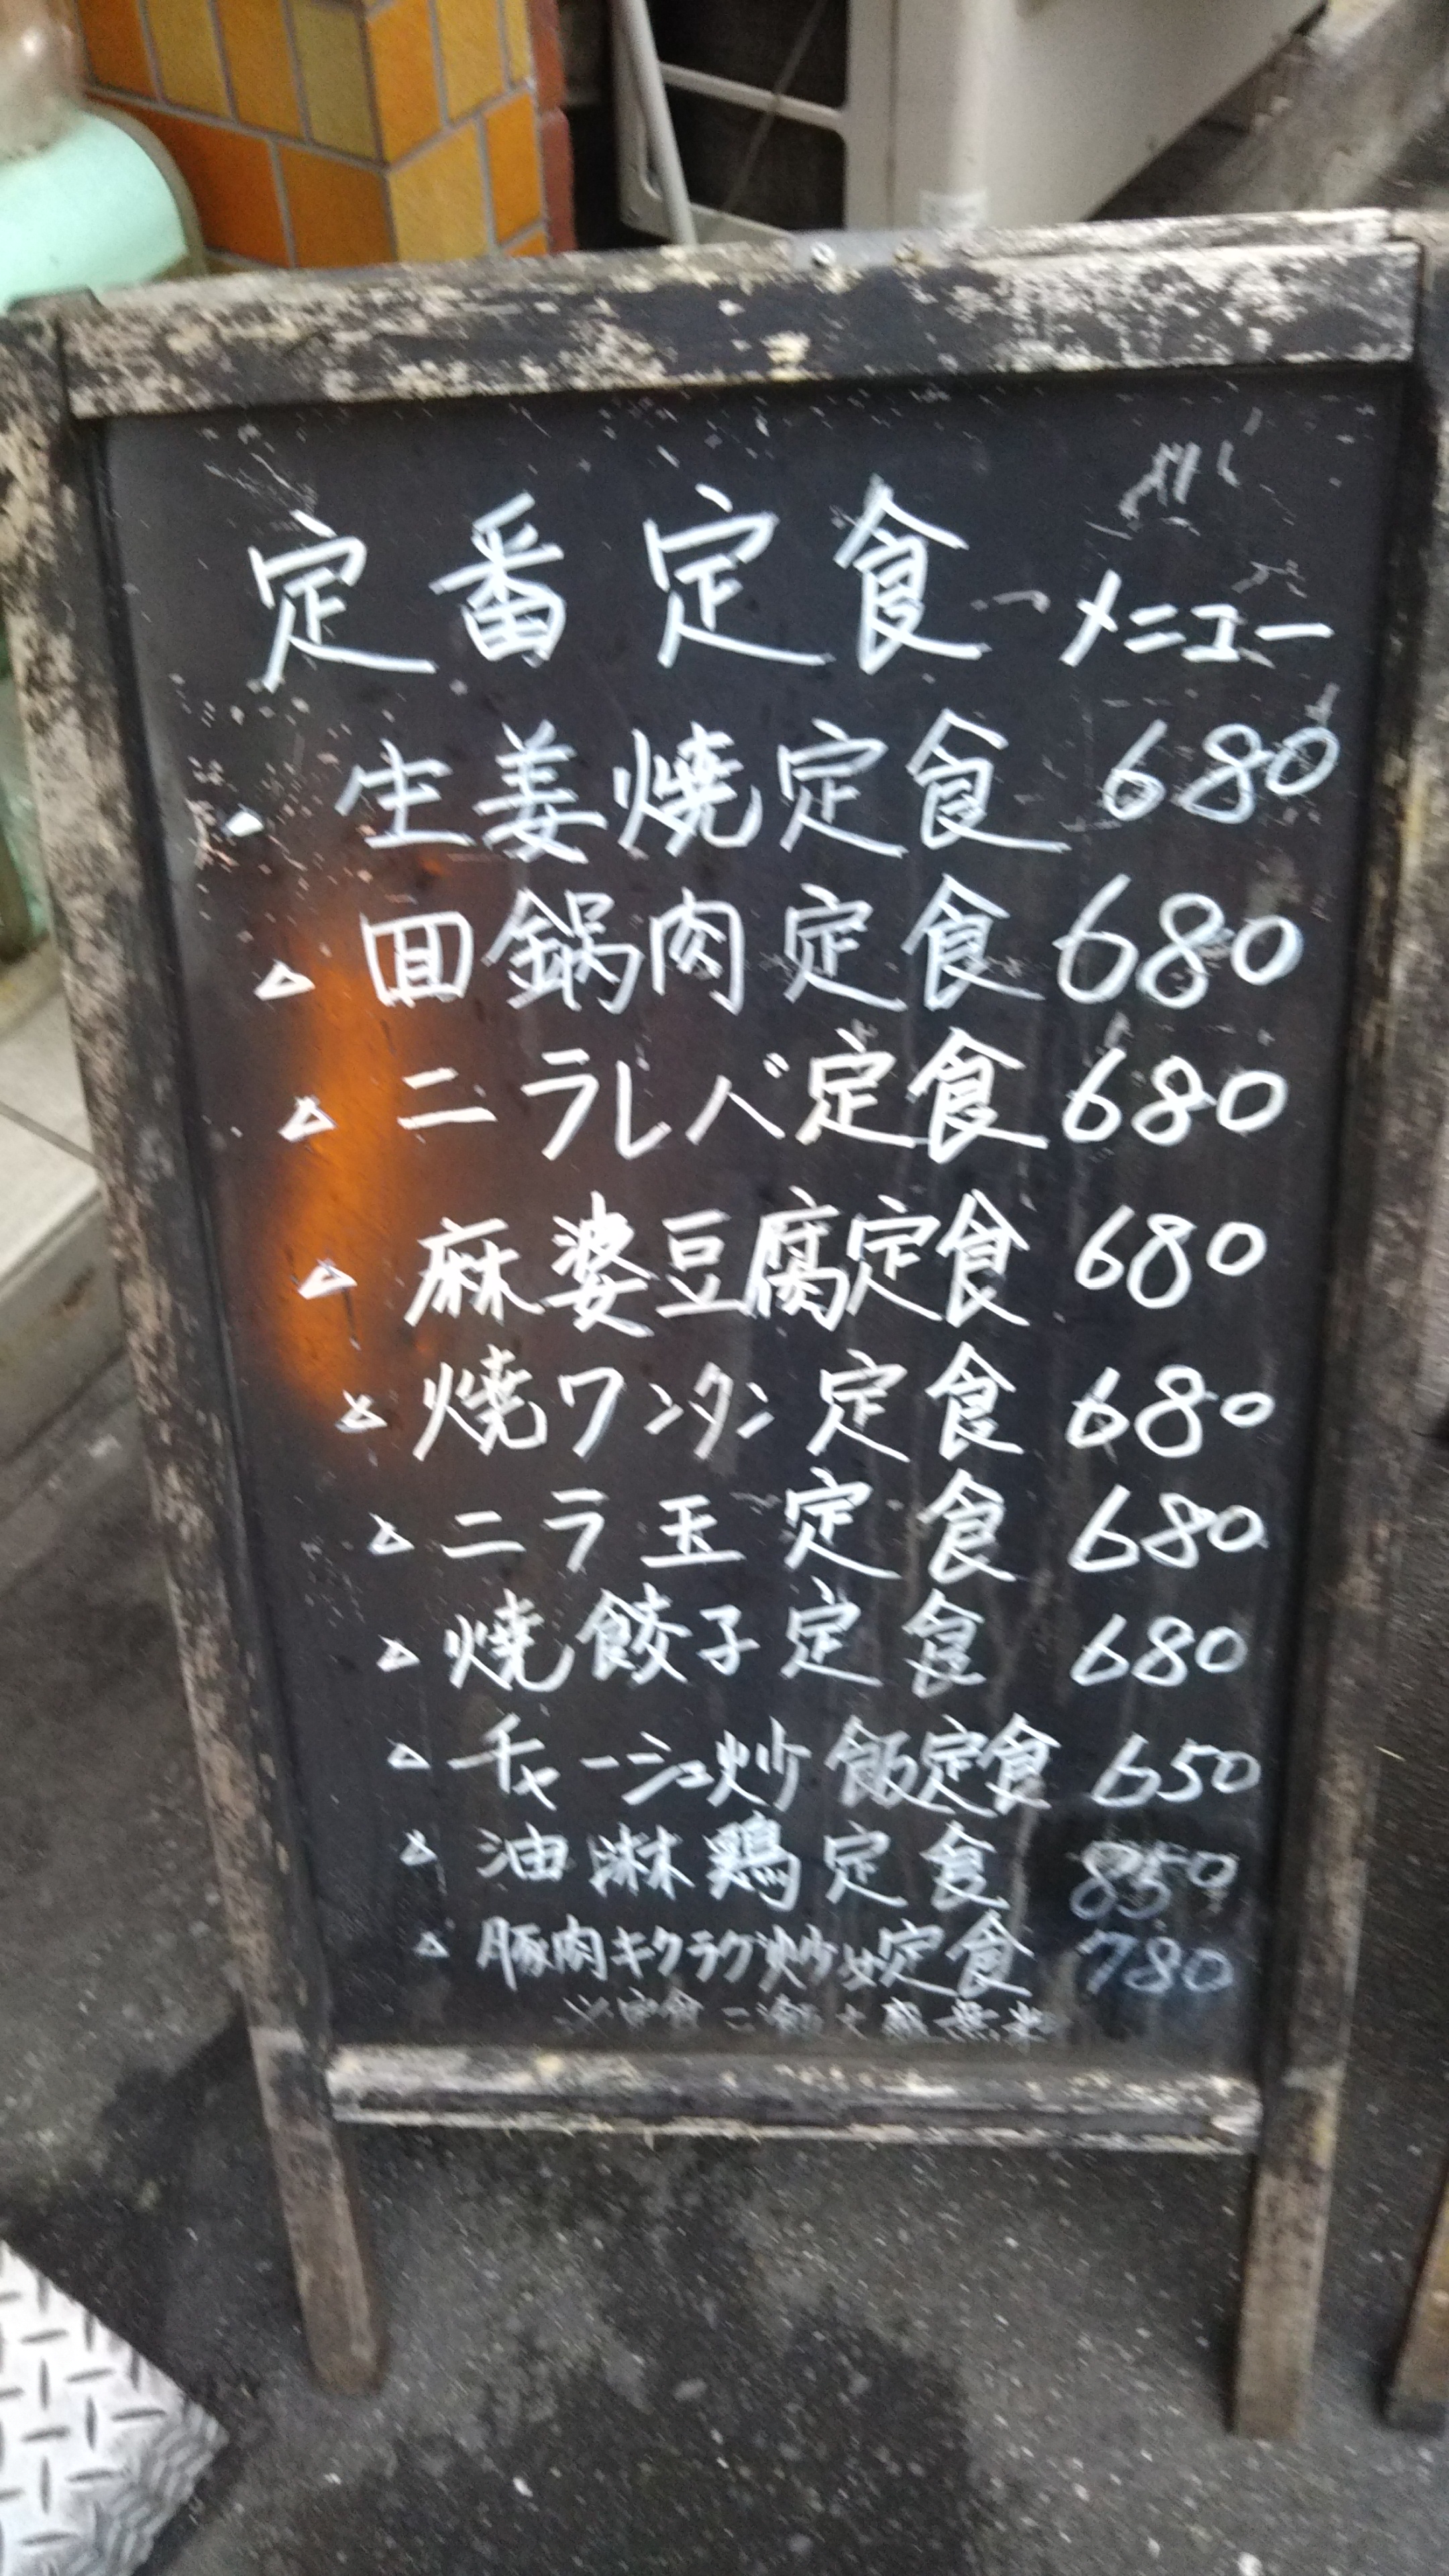 定番定食メニュー
生姜焼定食 680
△ 回鍋肉定食 680
△ ニラレバ定食 680
△ 麻婆豆腐定食 680
△ 焼ワンタン定食 680
△ ニラ玉定食 680
△ 焼餃子定食 680
△ チャーシュー炒飯定食 650
△ 油淋鶏定食 850
△ 豚肉キクラゲ炒め定食 780
※定食ご飯大盛無料